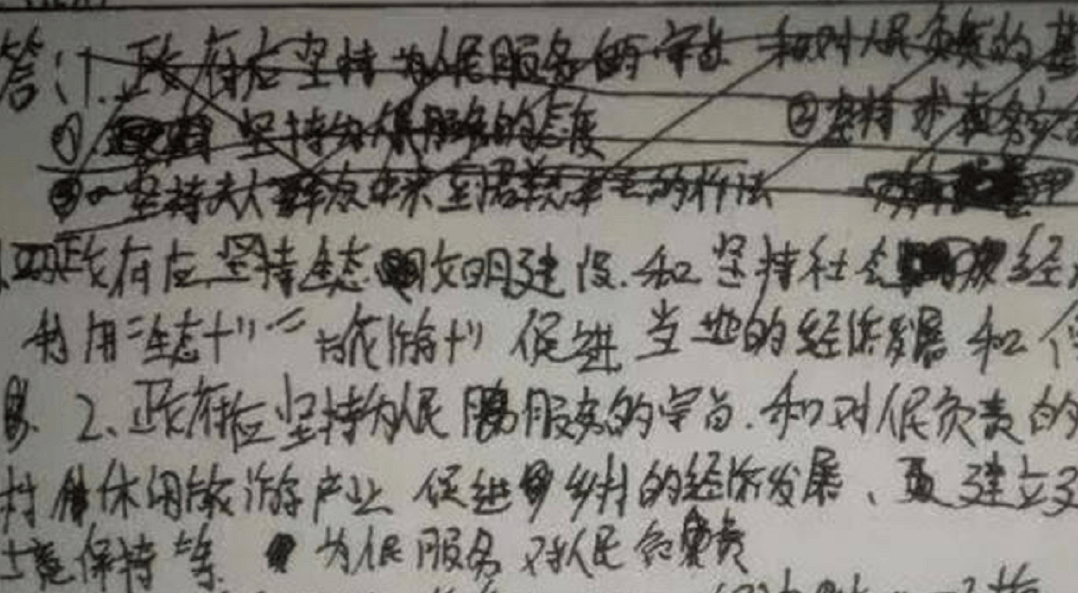 答：1.政府应坚持为人民服务的宗旨 和对人民负责的基
① 坚持为人民服务的态度 ②坚持求真务实
③ 坚持从群众中来到群众中去的作法
政府应坚持生态文明建设.和坚持社会 经
利用"生态+" "旅游+" 促进当地的经济发展 和
2、政府应坚持为人民服务的宗旨.和对人民负责的
村休闲旅游产业 促进乡村的经济发展、建立
境保持等. 为人民服务 对人民负责